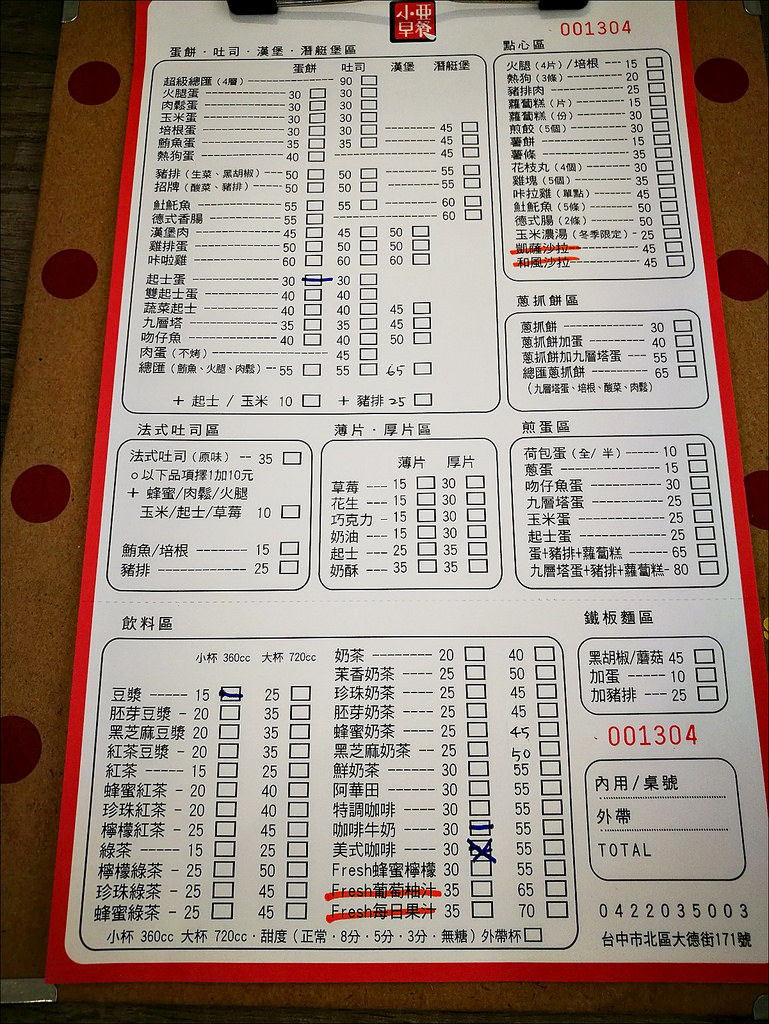 小亞
早餐
001304
蛋餅·吐司·漢堡·潛艇堡區
蛋餅 吐司 漢堡 潛艇堡
超級總匯(4層) 90
火腿蛋 30 30
肉鬆蛋 30 30
玉米蛋 30 30
培根蛋 30 30 45
鮪魚蛋 35 35 45
熱狗蛋 40 45
豬排(生菜、黑胡椒) 50 50 55
招牌(酸菜、豬排) 50 50 55
魠魠魚 55 60
德式香腸 55 60
漢堡肉 45 45 50
雞排蛋 50 50 50
咔啦雞 60 60 60
起士蛋 30 30
雙起士蛋 40 40
蔬菜起士 40 40 45
九層塔 35 35 45
吻仔魚 40 40 50
肉蛋(不烤) 45
總匯(鮪魚、火腿、肉鬆) 55 55 65
+ 起士 / 玉米 10 + 豬排 25
點心區
火腿(4片)/培根 15
熱狗(3條) 20
豬排肉 25
蘿蔔糕(片) 15
蘿蔔糕(份) 30
煎餃(5個) 30
薯餅 15
薯條 35
花枝丸(4個) 30
雞塊(5個) 35
咔拉雞(單點) 45
魠魠魚(5條) 50
德式腸(2條) 50
玉米濃湯(冬季限定) 25
凱薩沙拉 45
和風沙拉 45
蔥抓餅區
蔥抓餅 30
蔥抓餅加蛋 40
蔥抓餅加九層塔蛋 55
總匯蔥抓餅 65
(九層塔蛋、培根、酸菜、肉鬆)
法式吐司區
法式吐司(原味) 35
○以下品項擇1加10元
+ 蜂蜜/肉鬆/火腿
玉米/起士/草莓 10
鮪魚/培根 15
豬排 25
薄片·厚片區
薄片 厚片
草莓 15 30
花生 15 30
巧克力 15 30
奶油 15 30
起士 25 35
奶酥 35 35
煎蛋區
荷包蛋(全/半) 10
蔥蛋 15
吻仔魚蛋 30
九層塔蛋 25
玉米蛋 25
起士蛋 25
蛋+豬排+蘿蔔糕 65
九層塔蛋+豬排+蘿蔔糕 80
飲料區
小杯 360cc 大杯 720cc
豆漿 15 25
胚芽豆漿 20 35
黑芝麻豆漿 20 35
紅茶豆漿 20 35
紅茶 15 25
蜂蜜紅茶 20 40
珍珠紅茶 20 40
檸檬紅茶 25 45
綠茶 15 25
檸檬綠茶 25 50
珍珠綠茶 25 45
蜂蜜綠茶 25 45
奶茶 20 40
茉香奶茶 25 50
珍珠奶茶 25 45
胚芽奶茶 25 45
蜂蜜奶茶 25 45
黑芝麻奶茶 25 50
鮮奶茶 30 55
阿華田 30 55
特調咖啡 30 55
咖啡牛奶 30 55
美式咖啡 30 55
Fresh蜂蜜檸檬 30 55
Fresh葡萄柚汁 35 65
Fresh每日果汁 35 70
小杯 360cc 大杯 720cc·甜度(正常·8分·5分·3分·無糖)外帶杯
鐵板麵區
黑胡椒/蘑菇 45
加蛋 10
加豬排 25
001304
內用/桌號
外帶
TOTAL
0422035003
台中市北區大德街171號